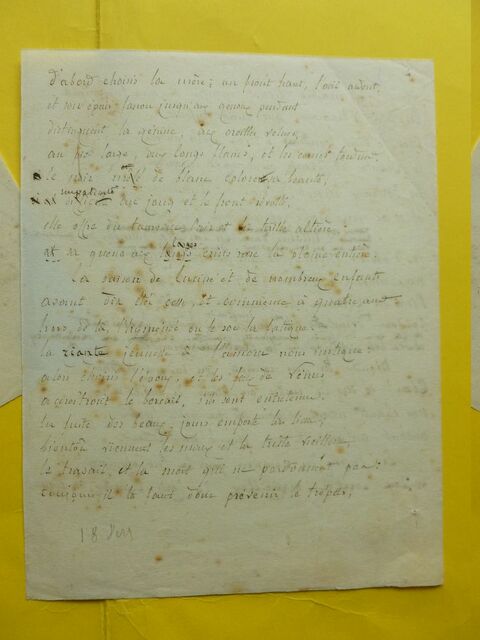 d'abord choisis la mère; un front haut, l'œil ardent,
et son épais fanon jusqu'aux genoux pendant
distinguent la génisse, aux oreilles velues,
au pié large, aux longs flancs, et les cornes tordues,
le noir de blanc colore sa beauté,
impatiente
du joug et le front
elle offre du taureau l'air et la taille altière
et sa queue aux longs crins rase la plaine entière.
larges
La saison de Lucine et de nombreux enfants
avant dix été cesse, et commence à quatre ans
hors de là, l'hyménée ou le soc la fatigue.
la riante jeunesse à
alors choisis l'époux, et les feux de Vénus
accroîtront le bercail, s'ils sont entretenus.
la fuite des beaux jours emporte
bientôt viennent les maux et la triste vieillesse
le travail, et la mort qui ne pardonnent pas:
il te faut donc prévenir le trépas,
18 vers